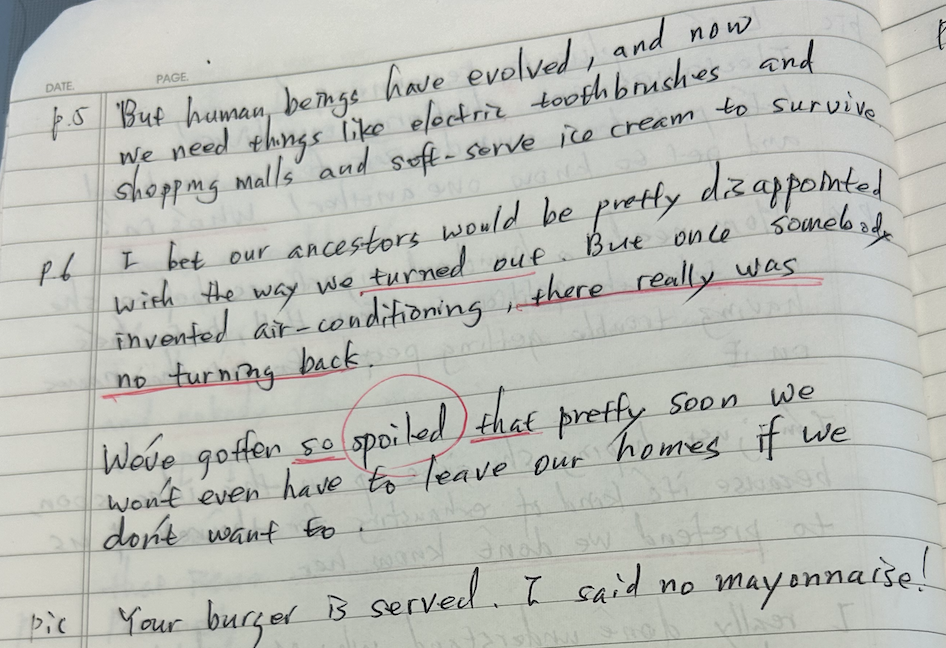 DATE. PAGE.
p.5 But human beings have evolved, and now
we need things like electric toothbrushes and
shopping malls and soft-serve ice cream to survive
p.6 I bet our ancestors would be pretty disappointed
with the way we turned out. But once somebody
invented air-conditioning, there really was
no turning back.
We've gotten so spoiled that pretty soon we
won't even have to leave our homes if we
don't want to.
pic Your burger is served. I said no mayonnaise!